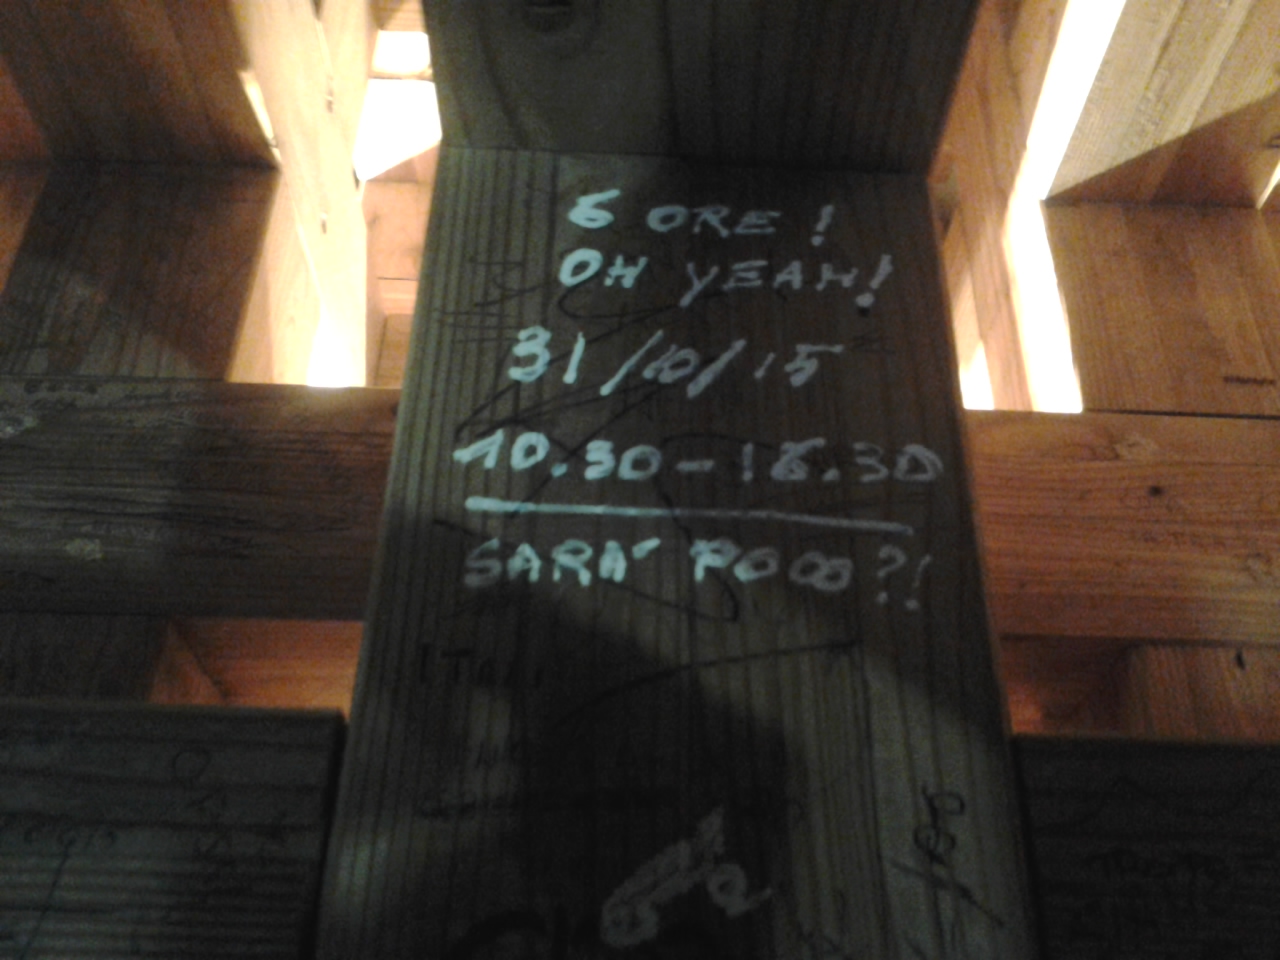 6 ORE!
OH YEAH!
31/10/15
10.30-16.30
SARA' POCO?!